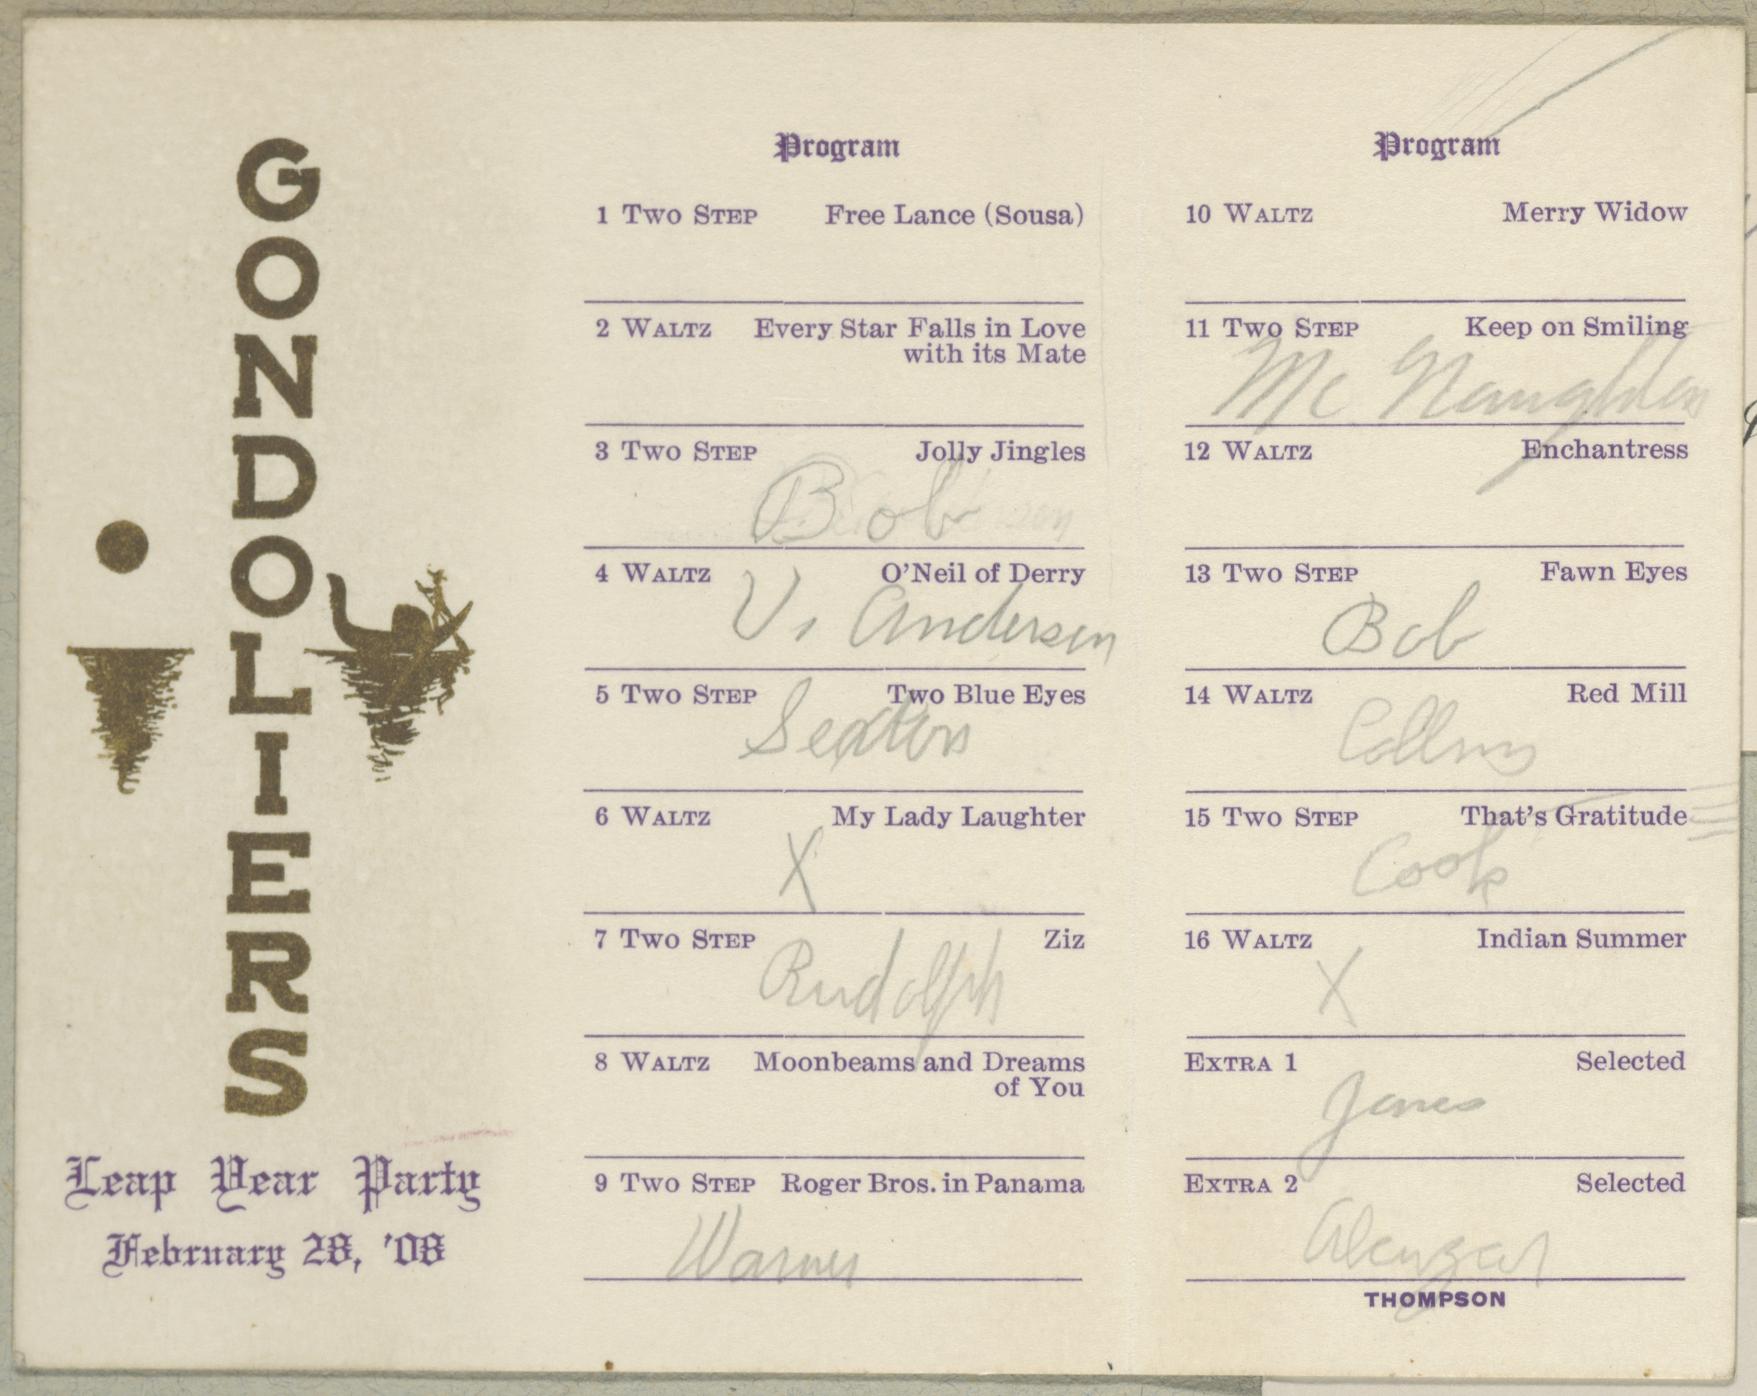 GONDOLIERS
Leap Year Party
February 28, '08
Program
1 Two Step Free Lance (Sousa)
2 Waltz Every Star Falls in Love
with its Mate
3 Two Step Jolly Jingles
Bob
4 Waltz O'Neil of Derry
V. Anderson
5 Two Step Two Blue Eyes
Sexton
6 Waltz My Lady Laughter
X
7 Two Step Ziz
Rudolph
8 Waltz Moonbeams and Dreams
of You
9 Two Step Roger Bros. in Panama
Warner
Program
10 Waltz Merry Widow
11 Two Step Keep on Smiling
Mc Naughton
12 Waltz Enchantress
13 Two Step Fawn Eyes
Bob
14 Waltz Red Mill
Collins
15 Two Step That's Gratitude
Cook
16 Waltz Indian Summer
X
Extra 1 Selected
Jones
Extra 2 Selected
THOMPSON